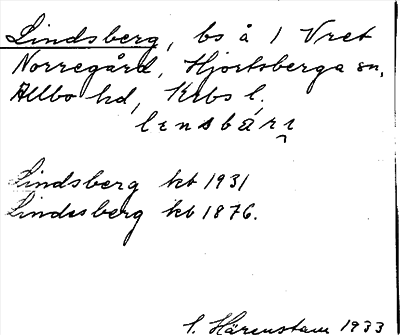 Lindsberg, bs å 1 Vret
Norregård, Hjortsberga sn,
Allbo hd, Krbs l.
Lindsberg kb 1931
Lindssberg kb 1876.
C. Härenstam 1933